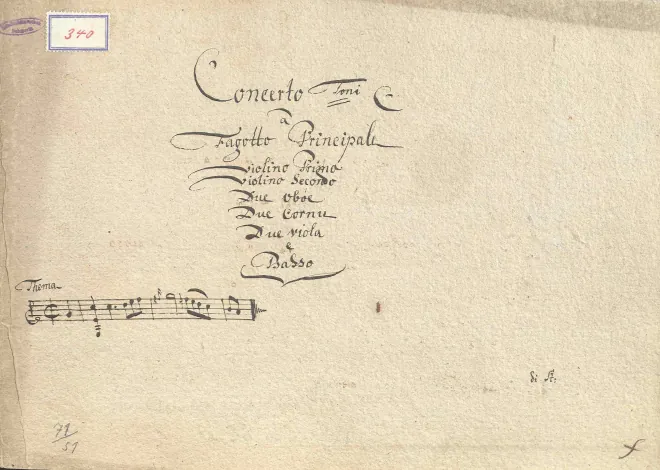 340
Concerto Toni C
à
Fagotto Principali
Violino Primo
Violino Secondo
Due Oboe
Due Cornu
Due Viola
e
Basso
Thema
di
71/51